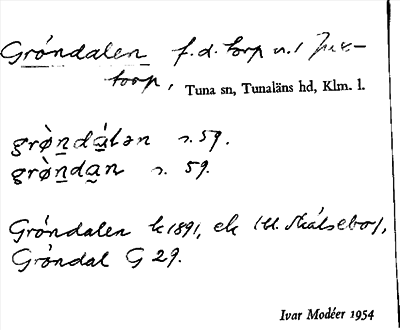 Gröndalen f.d. torp u.l
torp, Tuna sn, Tunaläns hd, Klm. l.
grø̀ndálən s. 59.
grø̀ndan s. 59.
Gröndalen k 1891, ek
Gröndal G 29.
Ivar Modéer 1954